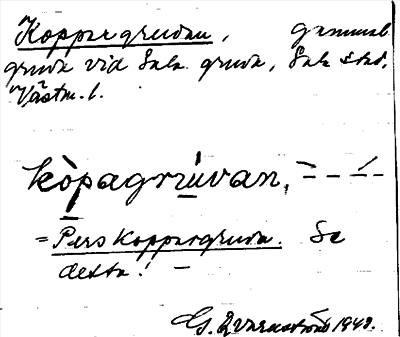 Koppargruvan, gammal
gruva vid Sala gruva, Sala stad,
Västm. l.
kòpagrúvan,
= Pers Koppargruva. Se
detta! –
G. Qvarnström 1940.